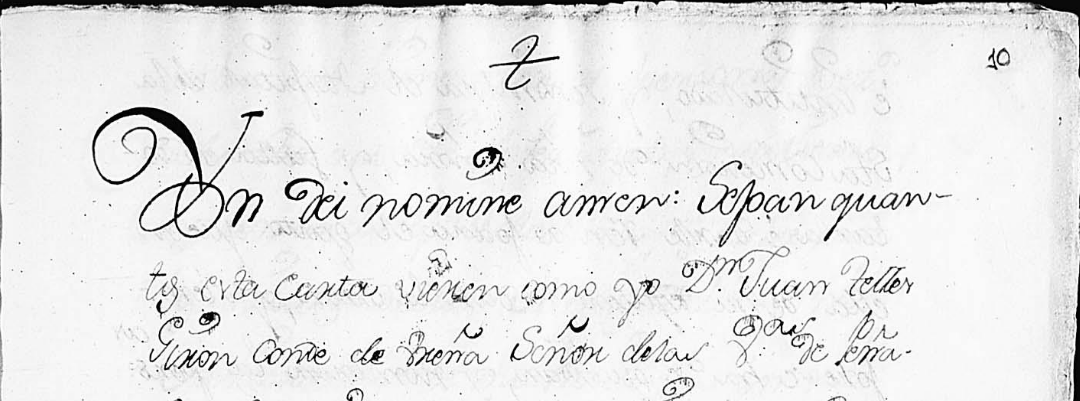 10
Yn Dei nomine amen: Sepan quan-
tos esta Carta vieren como yo Dn. Juan Teller
Giron Conde de Ureña Señor delas de Peña-